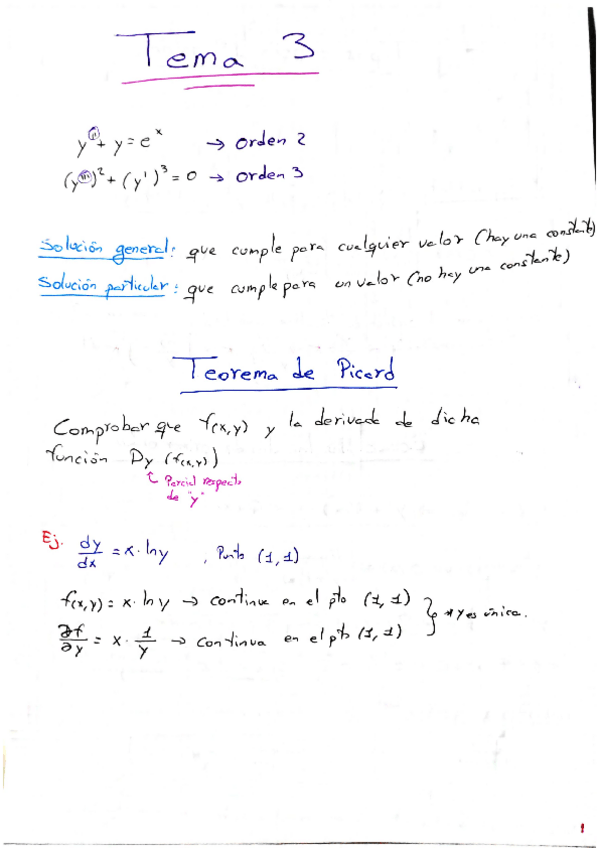 Tema 3
y'' + y = eˣ → orden 2
(y''')² + (y')³ = 0 → orden 3
Solución general: que cumple para cualquier valor (hay una constante)
Solución particular: que cumple para un valor (no hay una constante)
Teorema de Picard
Comprobar que f(x,y) y la derivada de dicha
función Dy (f(x,y))
Parcial respecto
de "y"
Ej. dy/dx = x · ln y , Punto (1,1)
f(x,y) = x · ln y → continua en el pto (1,1)
∂f/∂y = x · 1/y → continua en el pto (1,1)
} * y es única.
1